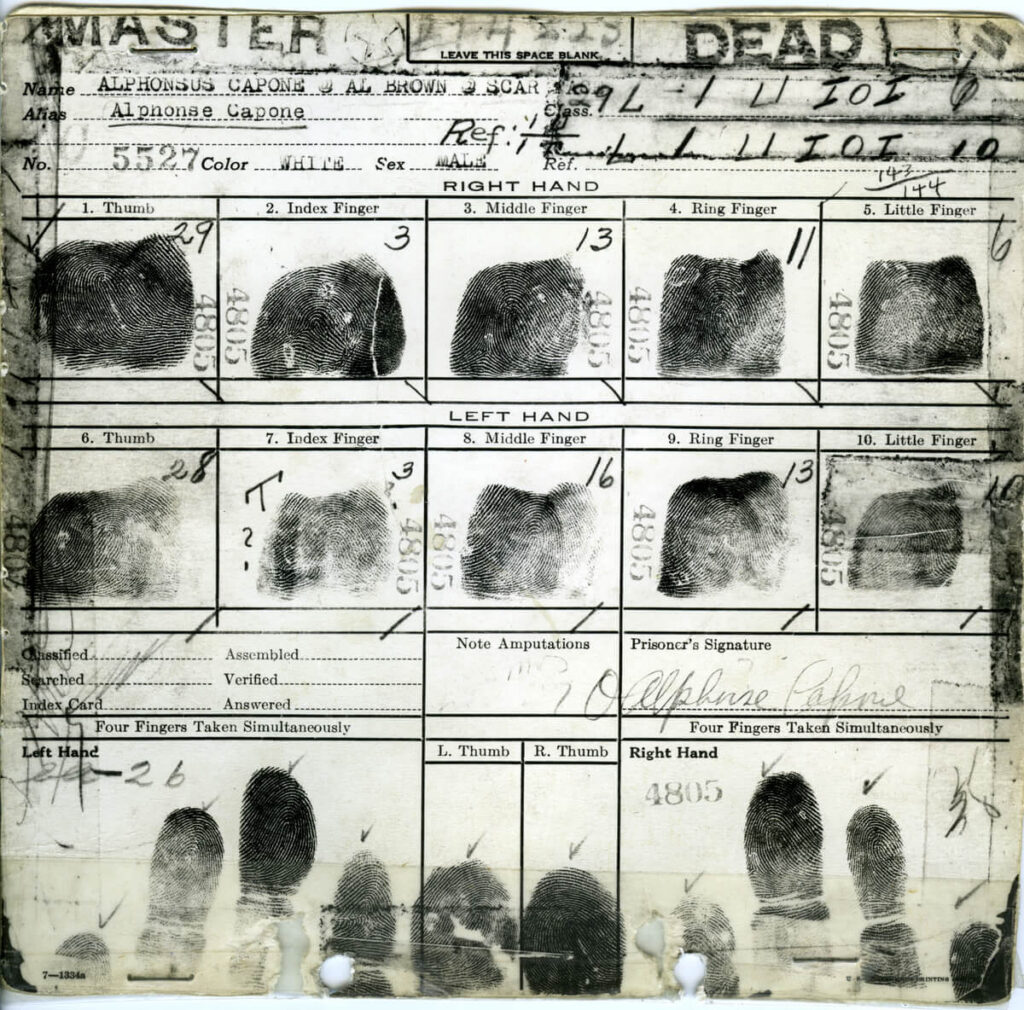 MASTER DEAD
LEAVE THIS SPACE BLANK
Name ALPHONSUS CAPONE @ AL BROWN @ SCAR Class. 29 L 1 U IOI 6
Alias Alphonse Capone
Ref: Ref. L 1 U IOI 10
No. 5527 Color WHITE Sex MALE
143
144
RIGHT HAND
1. Thumb 2. Index Finger 3. Middle Finger 4. Ring Finger 5. Little Finger
29 3 13 11 6
4805 4805 4805 4805 4805
LEFT HAND
6. Thumb 7. Index Finger 8. Middle Finger 9. Ring Finger 10. Little Finger
28 T 3 16 13 10
?
4805 4805 4805 4805 4805
Classified Assembled Note Amputations Prisoner's Signature
Searched Verified
Index Card Answered Alphonse Capone
Four Fingers Taken Simultaneously Four Fingers Taken Simultaneously
Left Hand L. Thumb R. Thumb Right Hand
26 4805
7—1334a